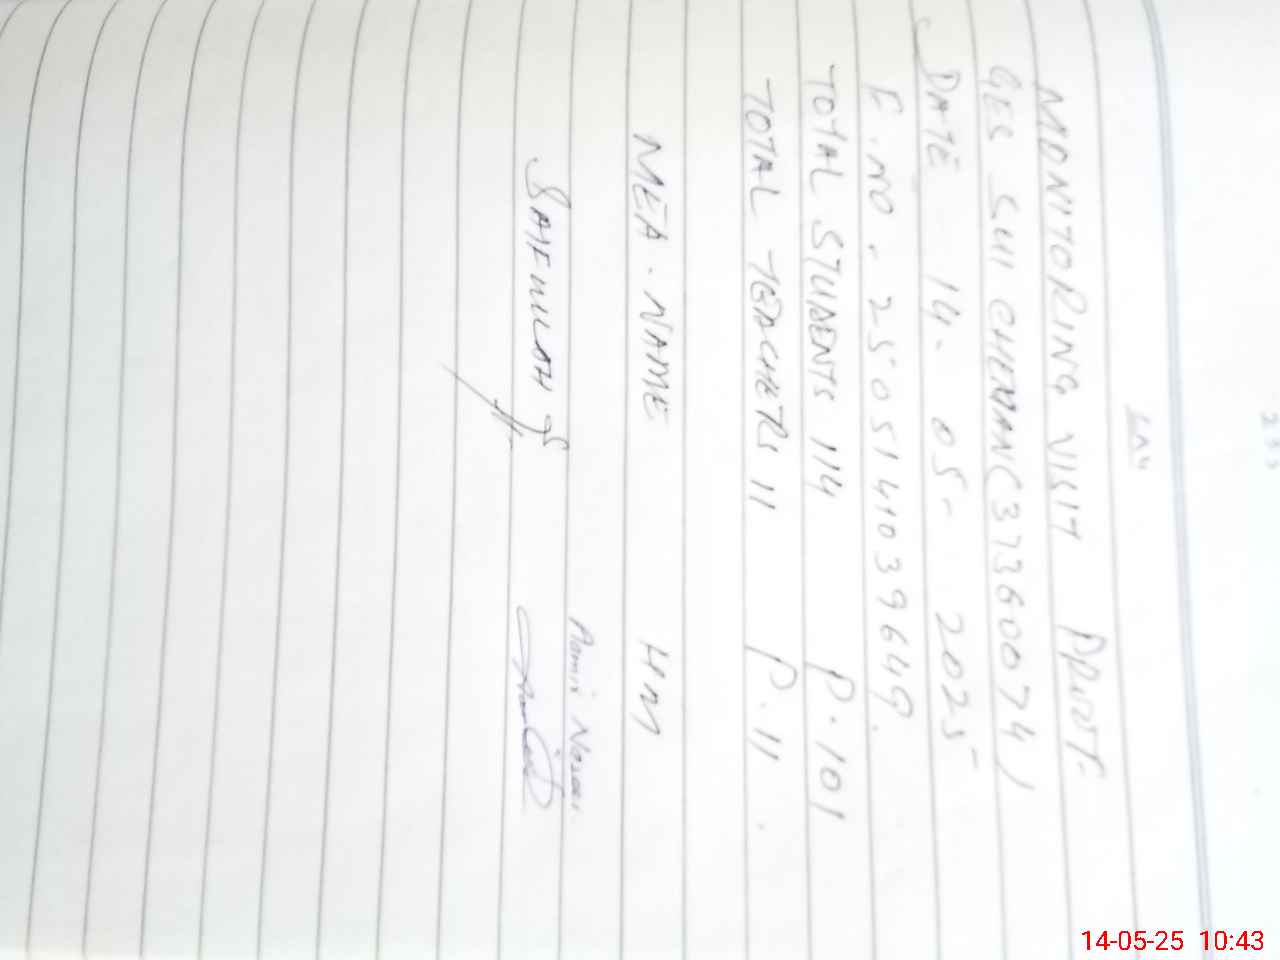 MONITORING VISIT PROOF
GES SUI CHEMAN (37360074)
DATE 14-05-2025
F.NO. 2505141039649.
TOTAL STUDENTS 114 P.101
TOTAL TEACHERS 11 P.11.
MEA. NAME HM
SAIFULLAH Aamir
14-05-25 10:43